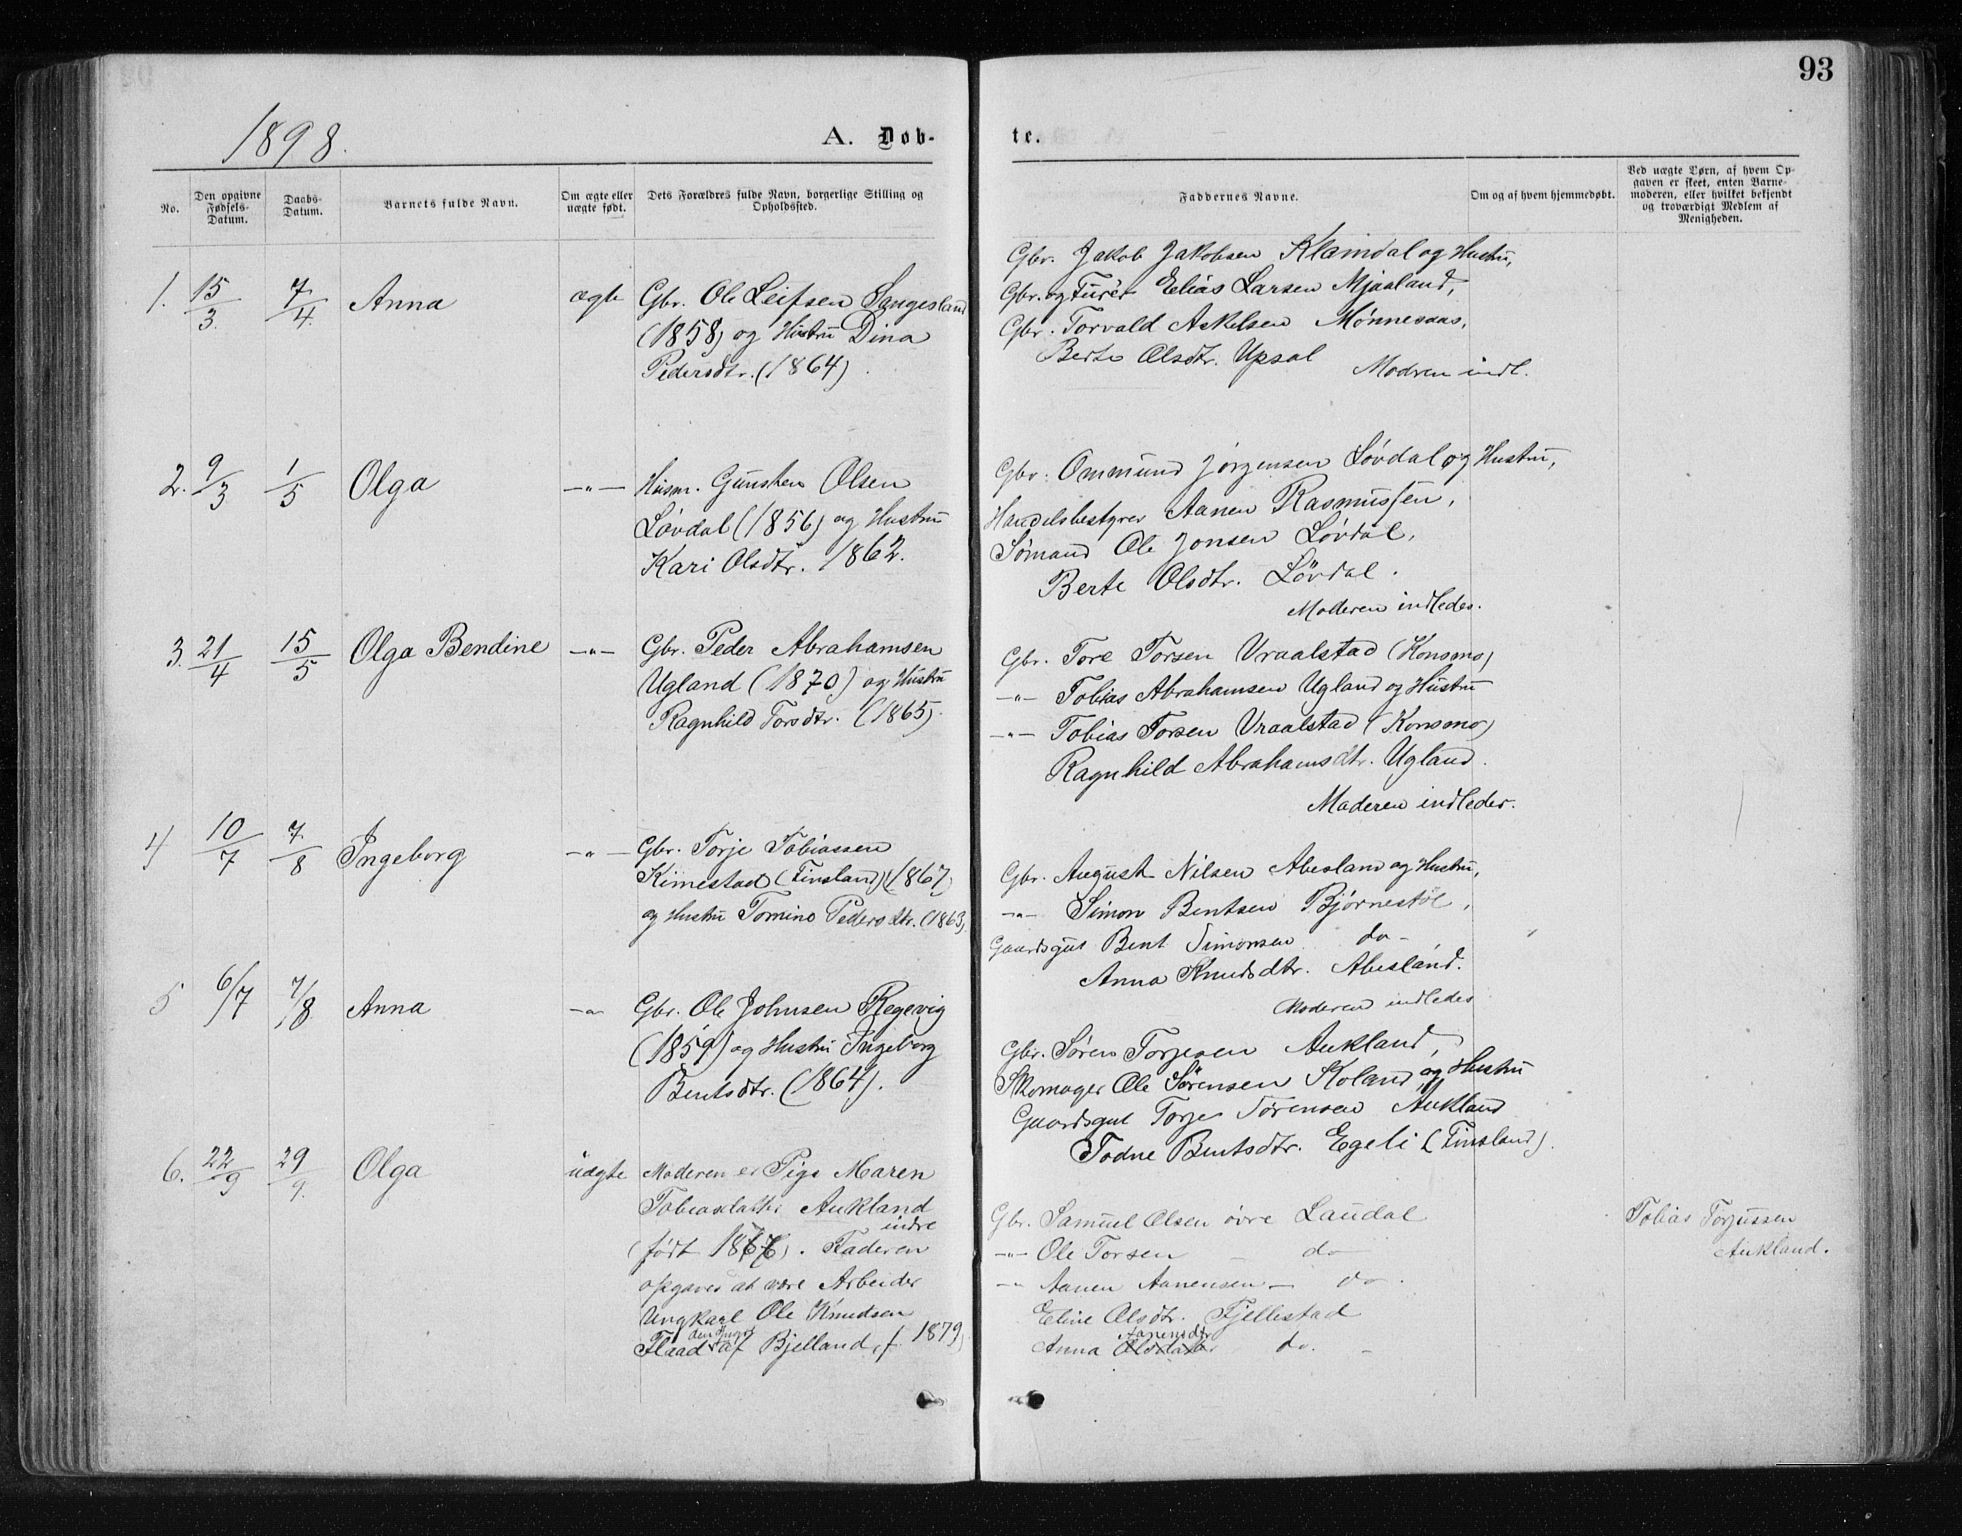 93
1898.
A. Døb-
te.
No.
Den opgivne Fødsels-Datum.
Daabs-Datum.
Barnets fulde Navn.
Om ægte eller uægte født.
Dets Forældres fulde Navn, borgerlige Stilling og Opholdssted.
Faddernes Navne.
Om og af hvem hjemmedøbt.
Ved uægte Børn, af hvem Opgaven er skeet, enten Barnemoderen, eller hvilket bekjendt og troværdigt Medlem af Menigheden.
1. 15/3. 7/4. Anna ægte Gbr. Ole Leifsen Sangesland
(1858) og Hustru Dina
Pedersdtr. (1864).
Gbr. Jakob Jakobsen Kleindal og Hustru,
Gbr. og Furér Elias Larsen Mjaaland,
Gbr. Torvald Askelsen Mønnesaas,
Berte Olsdtr. Upsal
Modren indl.
2. 9/3 1/5 Olga —"— Husm. Gunsten Olsen
Løvdal (1856) og Hustru
Kari Olsdtr. 1862.
Gbr. Ommund Jørgensen Løvdal og Hustru,
Handelsbestyrer Aanen Rasmussen,
Sømand Ole Jonsen Løvdal,
Berte Olsdtr. Løvdal.
Moderen indledes.
3. 21/4 15/5 Olga Bendine —"— Gbr. Peder Abrahamsen
Ugland (1870) og Hustru
Ragnhild Torsdtr. (1865).
Gbr. Tore Torsen Vraalstad (Konsmo)
—"— Tobias Abrahamsen Ugland og Hustru
—"— Tobias Torsen Vraalstad (Konsmo)
Ragnhild Abrahamsdtr. Ugland.
Moderen indledes.
4) 10/7 7/8 Ingeborg —"— Gbr. Torje Tobiassen
Kimestad (Finsland) (1867)
og Hustru Tomine Pedersdtr. (1863)
Gbr. August Nilsen Abesland og Hustru,
—"— Simon Bentsen Bjørnestøl,
Gaardsgut Bent Simonsen do-
Anna Knudsdtr. Abesland.
Moderen indledes
5 6/7 7/8 Anna —"— Gbr. Ole Johnsen Regevig
(1859) og Hustru Ingeborg
Bentsdtr. (1864).
Gbr. Søren Torjesen Aukland,
Skomager Ole Sørensen Koland og Hustru
Gaardsgut Torje Sørensen Aukland
Todne Bentsdtr. Egeli (Finsland).
6. 22/9 29/9. Olga uægte Moderen er Pige Maren
Tobiasdatter Aukland
indre
(født 1876). Faderen
opgaves at være Arbeider
Ungkarl Ole Knudsen
Flaad af Bjelland, f. 1879)
Gbr. Samuel Olsen øvre Laudal
—"— Ole Torsen – do
—"— Aanen Aanensen – do.
Eline Olsdtr. Fjellestad
Aanensdtr
Anna Olsdatter do. –
Tobias Torjussen
Aukland.